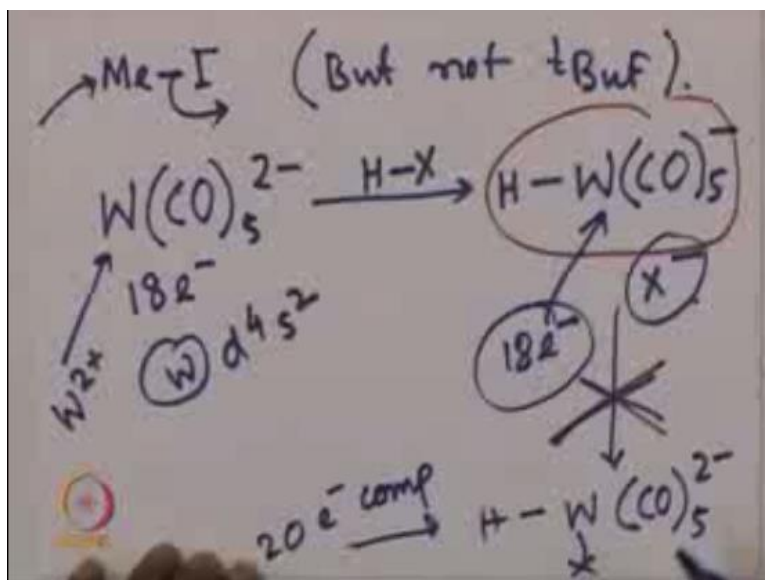 Me-I (But not tBuF).
W(CO)5 2- H-X H-W(CO)5 -
18e- 18e- X-
W d4s2
20 e- comp H-W(CO)5 2-
X